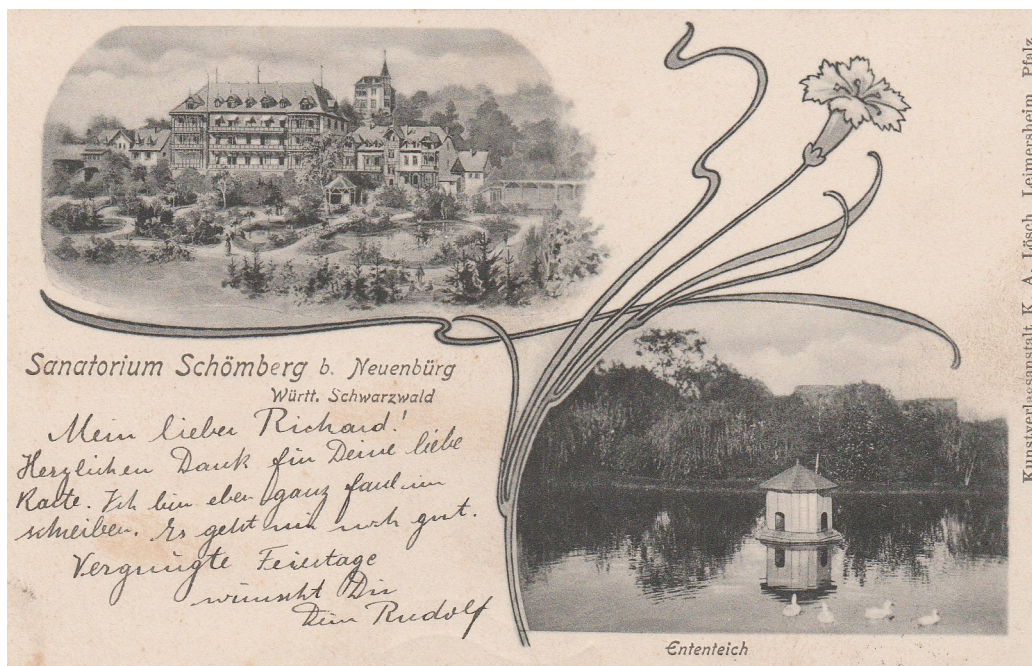 Sanatorium Schömberg b. Neuenbürg
Württ. Schwarzwald
Mein lieber Richard!
Herzlichen Dank für Deine liebe
Karte. Ich bin eben ganz faul im
schreiben. Es geht mir noch gut.
Vergnügte Feiertage
wünscht Dir
Dein Rudolf
Ententeich
Kunstverlagsanstalt K. A. Lösch, Leimersheim Pfalz